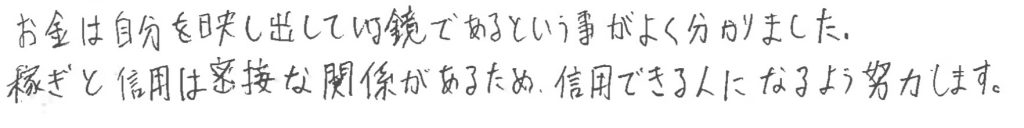 お金は自分を映し出している鏡であるという事がよく分かりました.
稼ぎと信用は密接な関係があるため、信用できる人になるよう努力します。